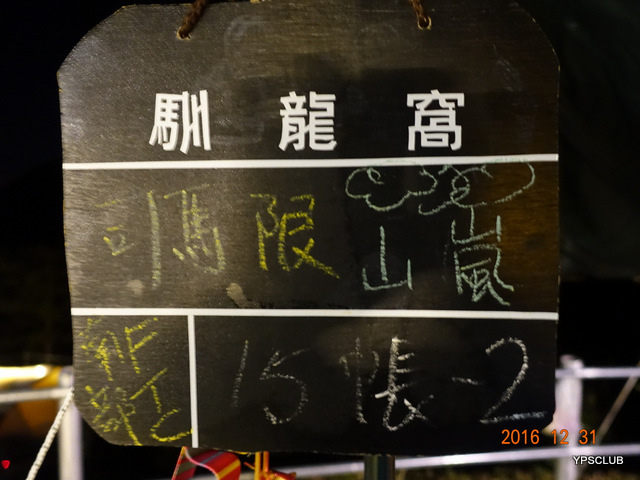 馴龍窩
司馬限 山嵐
15帳-2
2016 12 31
YPSCLUB